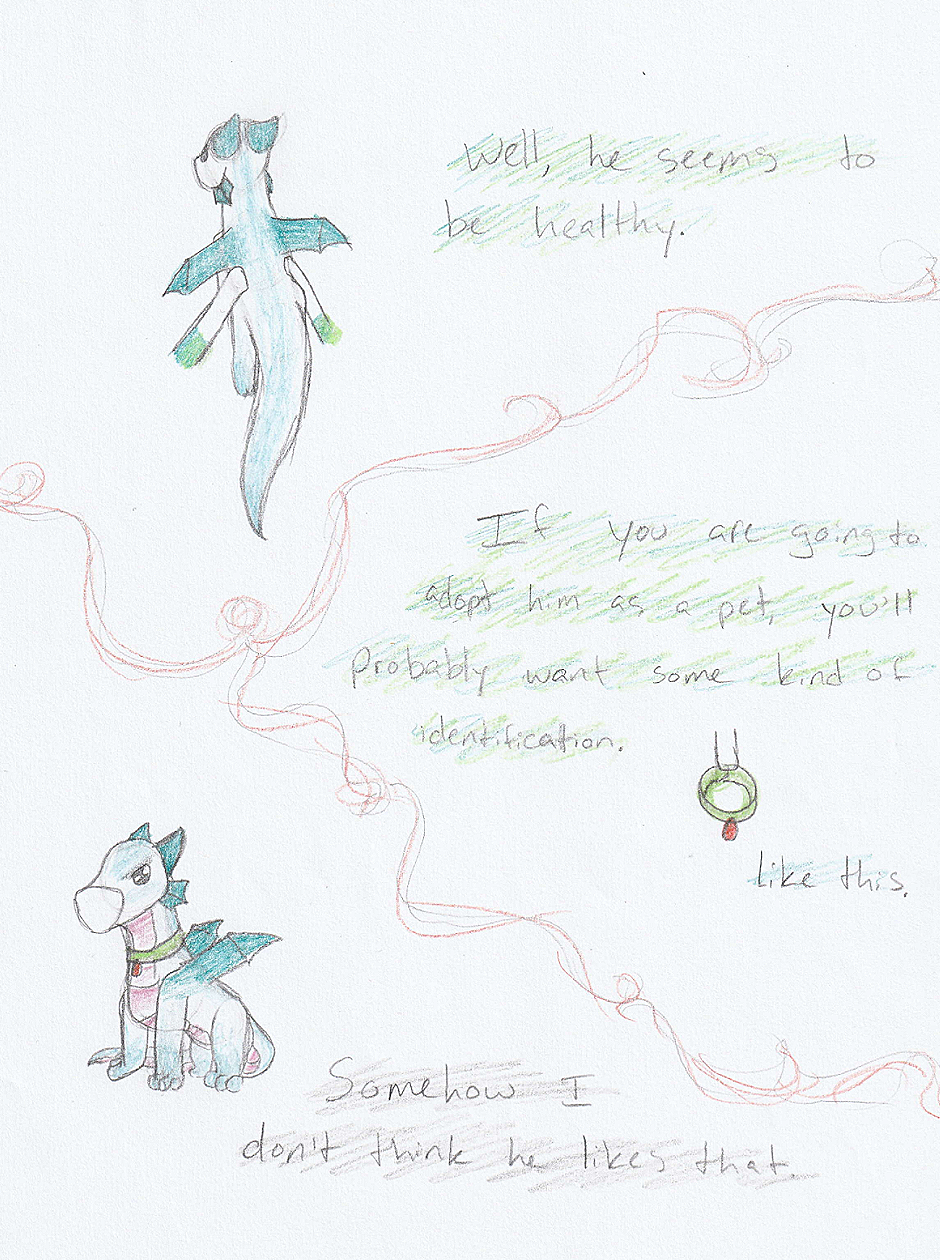 Well, he seems to
be healthy.
If you are going to
adopt him as a pet, you'll
Probably want some kind of
identification.
like this.
Somehow I
don't think he likes that.